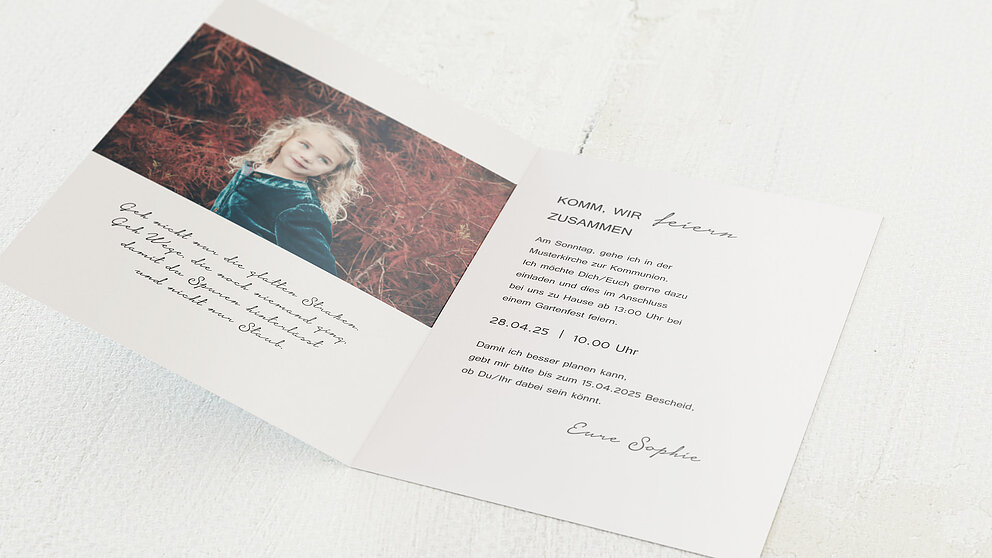 Geh nicht nur die glatten Straßen.
Geh Wege, die noch niemand ging,
damit du Spuren hinterlässt
und nicht nur Staub.
KOMM, WIR feiern
ZUSAMMEN
Am Sonntag, gehe ich in der
Musterkirche zur Kommunion.
Ich möchte Dich/Euch gerne dazu
einladen und dies im Anschluss
bei uns zu Hause ab 13:00 Uhr bei
einem Gartenfest feiern.
28.04.25 | 10.00 Uhr
Damit ich besser planen kann,
gebt mir bitte bis zum 15.04.2025 Bescheid,
ob Du/Ihr dabei sein könnt.
Eure Sophie